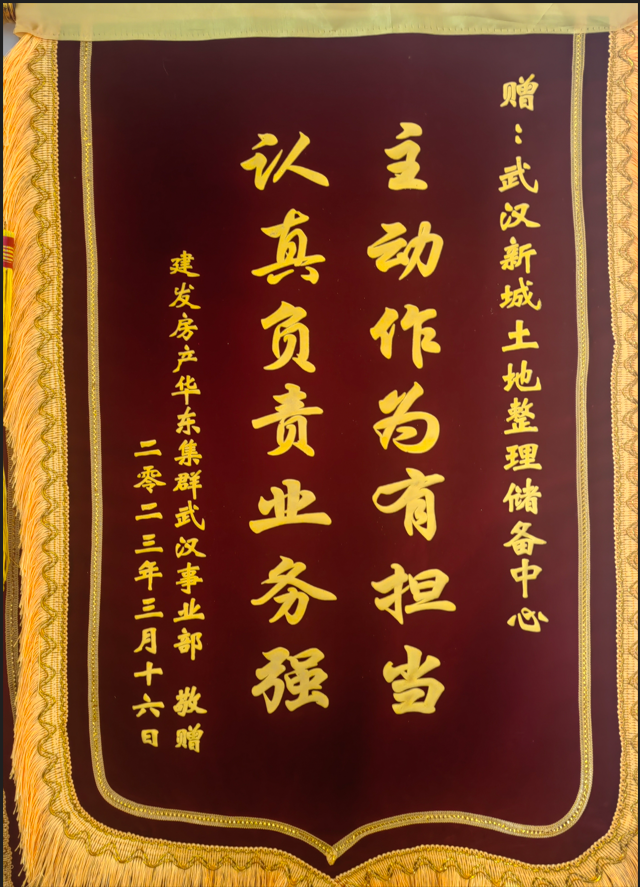 赠：武汉新城土地整理储备中心
主动作为有担当
认真负责业务强
建发房产华东集群武汉事业部 敬赠
二零二三年三月十六日